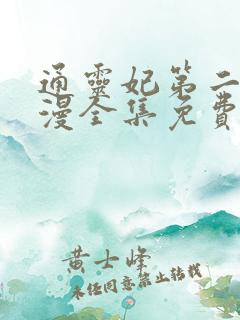 通靈妃第二
漫全集免費
黃士峰
未经同意禁止转载